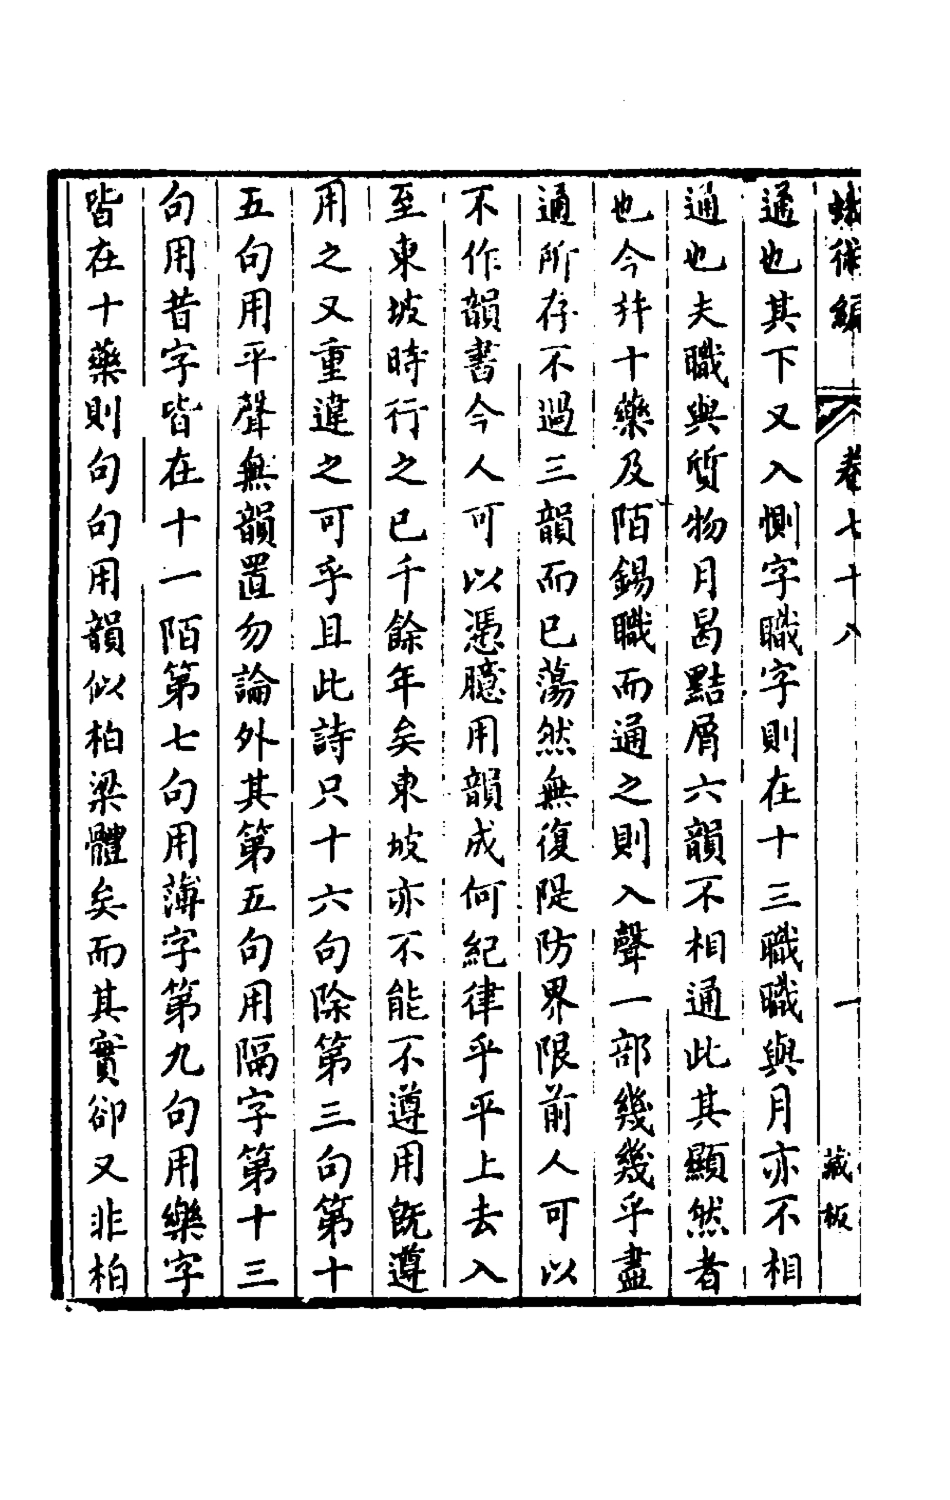 蛾術編 卷七十八 一 藏板
通也其下又入惻字職字則在十三職職與月亦不相
通也夫職與質物月曷黠屑六韻不相通此其顯然者
也今幷十藥及陌錫職而通之則入聲一部幾幾乎盡
通所存不過三韻而已蕩然無復隄防界限前人可以
不作韻書今人可以憑臆用韻成何紀律乎平上去入
至東坡時行之已千餘年矣東坡亦不能不遵用旣遵
用之又重違之可乎且此詩只十六句除第三句第十
五句用平聲無韻置勿論外其第五句用隔字第十三
句用昔字皆在十一陌第七句用薄字第九句用樂字
皆在十藥則句句用韻似柏梁體矣而其實卻又非柏